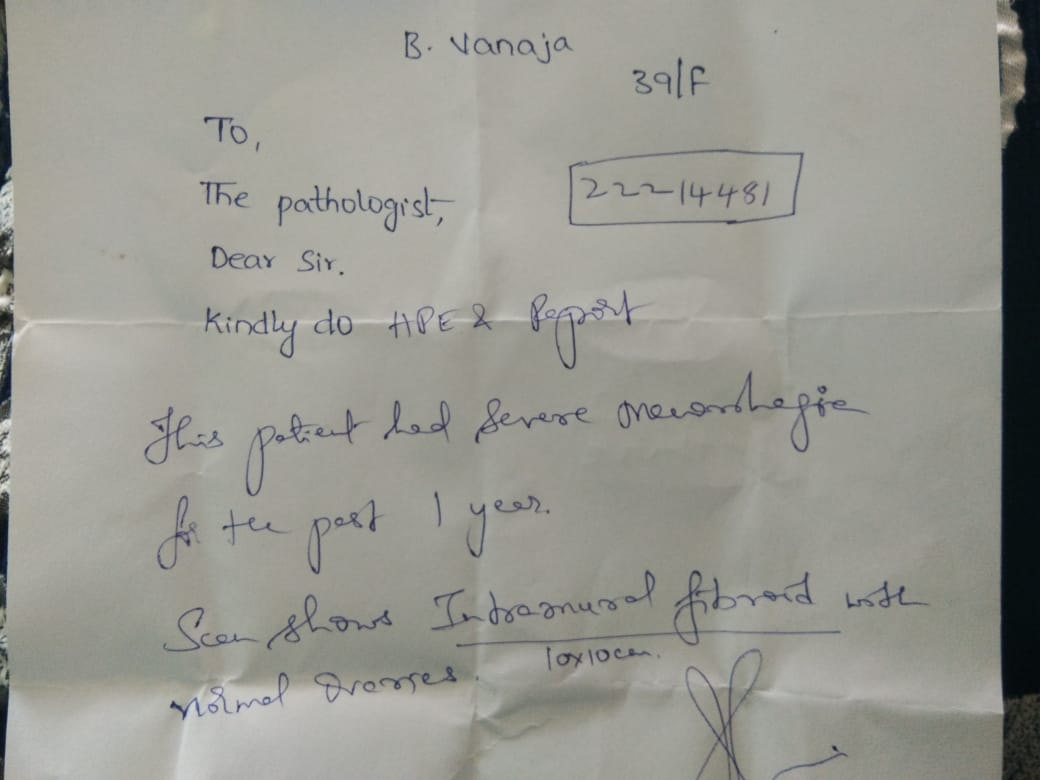 B. Vanaja
39/F
To,
The pathologist,
22214481
Dear Sir.
Kindly do HPE & Report
This patient had severe menorrhagia
for the past 1 year.
Scan shows Intramural fibroid with
10x10cm.
normal ovaries.